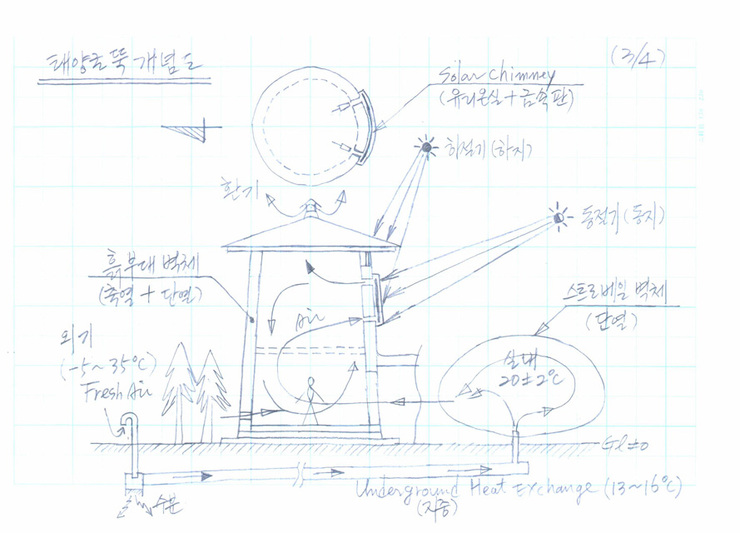 태양굴뚝 개념도
(3/4)
Solar chimney
(유리온실+금속판)
하절기(하지)
환기
동절기(동지)
흙부대 벽체
(축열+단열)
스트로베일 벽체
(단열)
Air
외기
(-5~35℃)
Fresh Air
실내
20±2℃
GL±0
수분
Underground Heat Exchange (13~16℃)
(지중)